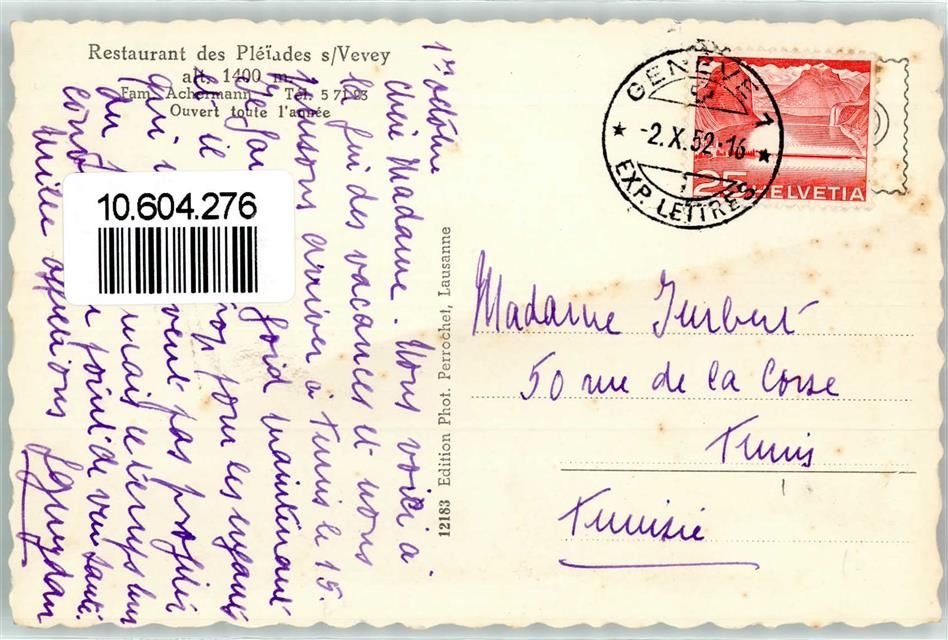 Restaurant des Pléïades s/Vevey
alt. 1400 m.
Fam. Achermann Tél. 5 71 93
Ouvert toute l'année
1er octobre
Chère Madame. Nous voici à
la fin des vacances et nous
pensons arriver à Tunis le 15.
froid maintenant
et il trop pour les
qui veut pas profiter
du mais le temps
point de vue santé.
Mille affections
10.604.276
12183 Edition Phot. Perrochet, Lausanne
GENÈVE 1
-2.X.52-16
EXP. LETTRES
25 HELVETIA
Madame
50 rue de la Corse
Tunis
Tunisie